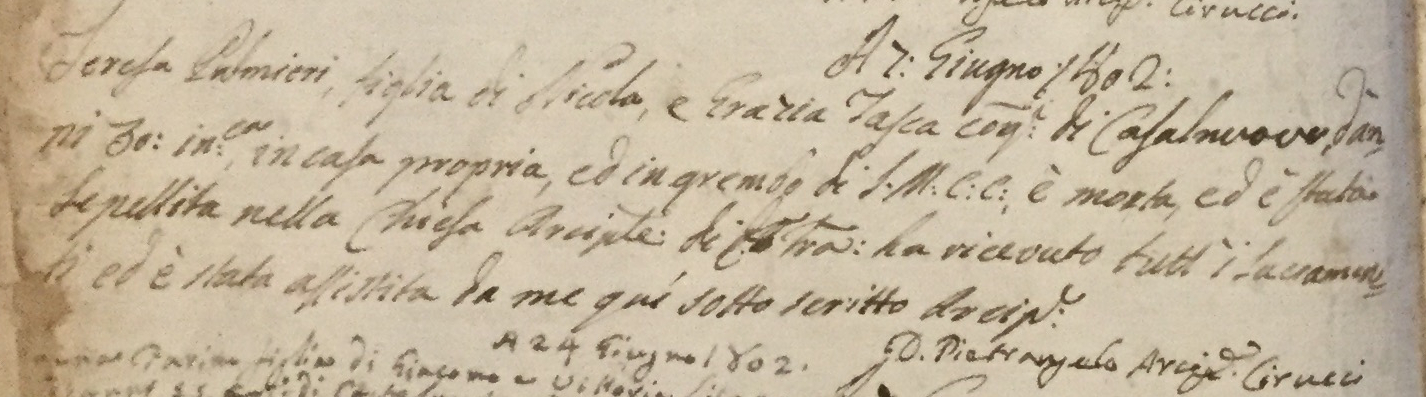 Arcip. Cirucci.
A 7: Giugno 1802:
Teresa Palmieri, figlia di Nicola, e Grazia Tasca coniug: di Casalnuovo, d'an-
ni 30: in.ca, in casa propria, ed in grembo di S. M. C. C:, è morta, ed è stata
sepellita nella Chiesa Arciple: di Tra: ha ricevuto tutt'i Sacramen-
ti ed è stata assistita da me qui sotto scritto Arcip.e
D. Pietrangelo Arcip.e Cirucci
A 24 Giugno 1802.
figlia di Giacomo e Vittoria